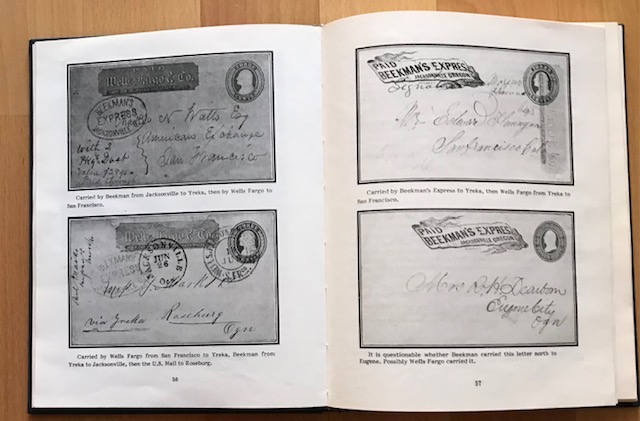 PAID
Wells Fargo & Co.
BEEKMAN'S
EXPRESS
JACKSONVILLE
N Watts Esq
American Exchange
San Francisco
with 2
Pkgs Dust
Carried by Beekman from Jacksonville to Yreka, then by Wells Fargo to
San Francisco.
Wells Fargo & Co.
BEEKMAN'S
EXPRESS
JACKSONVILLE
JUN
26
Ogn
via Yreka
Roseburg
Ogn
Carried by Wells Fargo from San Francisco to Yreka, Beekman from
Yreka to Jacksonville, then the U.S. Mail to Roseburg.
56
PAID
BEEKMAN'S EXPRESS
JACKSONVILLE OREGON
Mr Edward Flanagan
San Francisco Cal
Carried by Beekman's Express to Yreka, then Wells Fargo from Yreka to
San Francisco.
PAID
BEEKMAN'S EXPRESS
JACKSONVILLE OREGON
Mrs R. H. Dearborn
Eugene City
Ogn
It is questionable whether Beekman carried this letter north to
Eugene. Possibly Wells Fargo carried it.
57